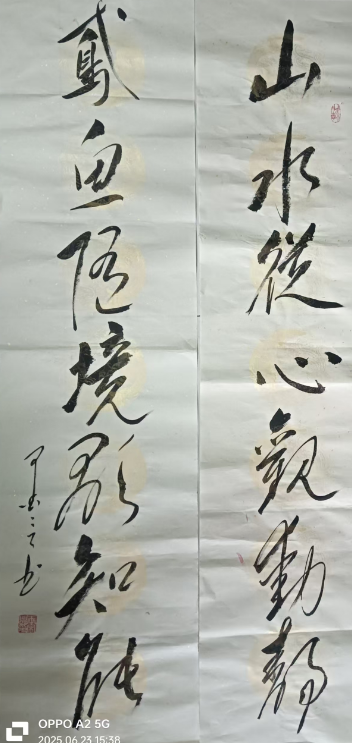 山水從心觀動靜
鳶魚隨境知能
书
OPPO A2 5G
2025.06.23 15:38